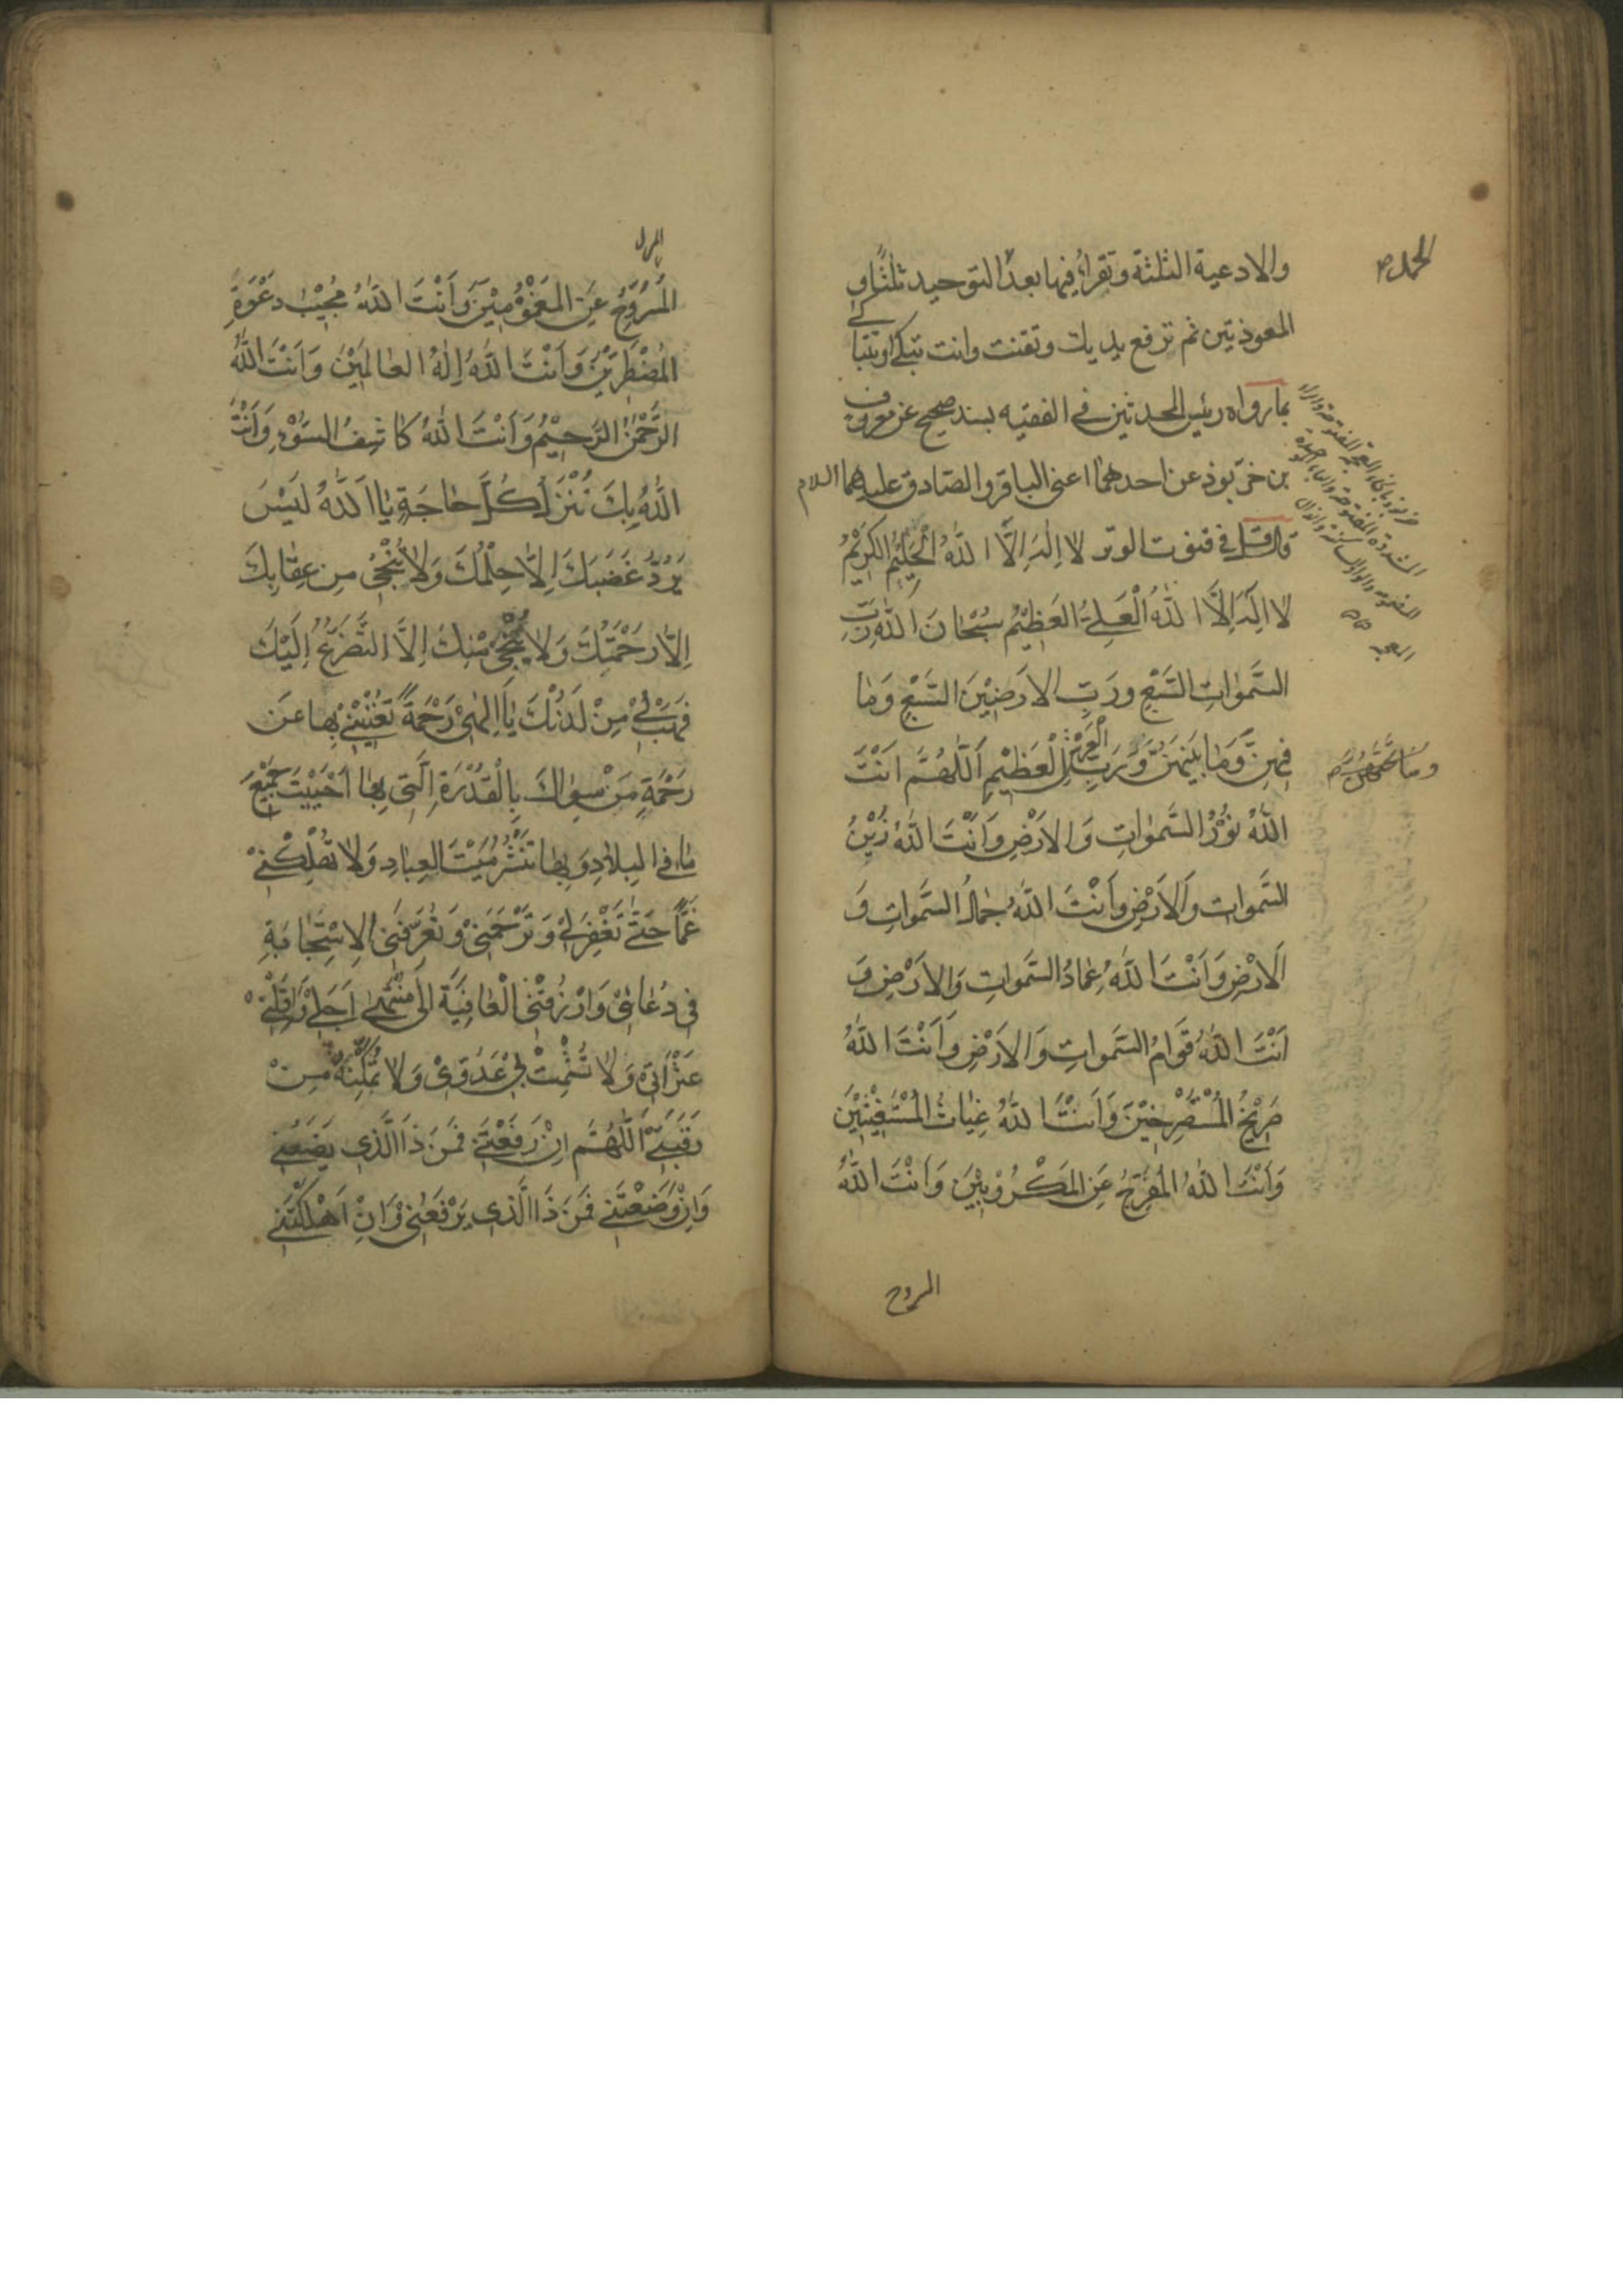 والادعية الثلثة وتقرأ فيها بعد التوحيد ثلثًا و
الحمد ص
المعوذتين ثم ترفع يديك وتقنت وانت تبكي او تتباكى
بما رواه رئيس المحدثين في الفقيه بسند صحيح عن معروف
بن خرّبوذ عن احدهما اعنى الباقر والصادق عليهما السلام
قال قل في قنوت الوتر لا اِلٰهَ اِلَّا اللهُ الْحَلِيْمُ الكَرِيْمُ
لا اِلٰهَ اِلَّا اللهُ الْعَلِيُّ العَظِيْمُ سُبْحَانَ اللهِ رَبِّ
السَّمٰوَاتِ السَّبْعِ ورَبِّ الاَرَضِيْنَ السَّبْعِ وَمَا
فِيْهِنَّ وَمَا بَيْنَهُنَّ وَرَبِّ الْعَرْشِ الْعَظِيْمِ اَللّٰهُمَّ اَنْتَ
وما تحتهن ص
اللهُ نُوْرُ السَّمٰوَاتِ وَالاَرْضِ وَاَنْتَ اللهُ زَيْنُ
السَّمٰوَاتِ وَالاَرْضِ وَاَنْتَ اللهُ جَمَالُ السَّمٰوَاتِ وَ
الاَرْضِ وَاَنْتَ اللهُ عِمَادُ السَّمٰوَاتِ وَالاَرْضِ وَ
اَنْتَ اللهُ قَوَامُ السَّمٰوَاتِ وَالاَرْضِ وَاَنْتَ اللهُ
صَرِيْخُ المُسْتَصْرِخِيْنَ وَاَنْتَ اللهُ غِيَاثُ المُسْتَغِيْثِيْنَ
وَاَنْتَ اللهُ المُفَرِّجُ عَنِ المَكْرُوْبِيْنَ وَاَنْتَ اللهُ
المروح
المُرَوِّحُ عَنِ المَغْمُوْمِيْنَ وَاَنْتَ اللهُ مُجِيْبُ دَعْوَةِ
المُضْطَرِّيْنَ وَاَنْتَ اللهُ اِلٰهُ العَالَمِيْنَ وَاَنْتَ اللهُ
الرَّحْمٰنُ الرَّحِيْمُ وَاَنْتَ اللهُ كَاشِفُ السُّوْءِ وَاَنْتَ
اللهُ بِكَ تُنْزَلُ كُلُّ حَاجَةٍ يَا اَللهُ لَيْسَ
يَرُدُّ غَضَبَكَ اِلاَّ حِلْمُكَ وَلا يُنْجِيْ مِنْ عِقَابِكَ
اِلاَّ رَحْمَتُكَ وَلا يُنْجِيْ مِنْكَ اِلاَّ التَّضَرُّعُ اِلَيْكَ
فَهَبْ لِيْ مِنْ لَدُنْكَ يَا اِلٰهِيْ رَحْمَةً تُغْنِيْنِيْ بِهَا عَنْ
رَحْمَةِ مَنْ سِوَاكَ بِالْقُدْرَةِ الَّتِي بِهَا اَحْيَيْتَ جَمِيْعَ
مَا فِي البِلاَدِ وَبِهَا تَنْشُرُ مَيْتَ العِبَادِ وَلا تُهْلِكْنِيْ
غَمًّا حَتّٰى تَغْفِرَ لِيْ وَتَرْحَمَنِيْ وَتُعَرِّفَنِي الاِسْتِجَابَةَ
فِي دُعَائِيْ وَارْزُقْنِي الْعَافِيَةَ اِلٰى مُنْتَهٰى اَجَلِيْ وَاَقِلْنِيْ
عَثْرَتِيْ وَلا تُشْمِتْ بِيْ عَدُوِّيْ وَلا تُمَكِّنْهُ مِنْ
رَقَبَتِيْ اَللّٰهُمَّ اِنْ رَفَعْتَنِيْ فَمَنْ ذَا الَّذِي يَضَعُنِيْ
وَاِنْ وَضَعْتَنِيْ فَمَنْ ذَا الَّذِي يَرْفَعُنِيْ وَاِنْ اَهْلَكْتَنِيْ